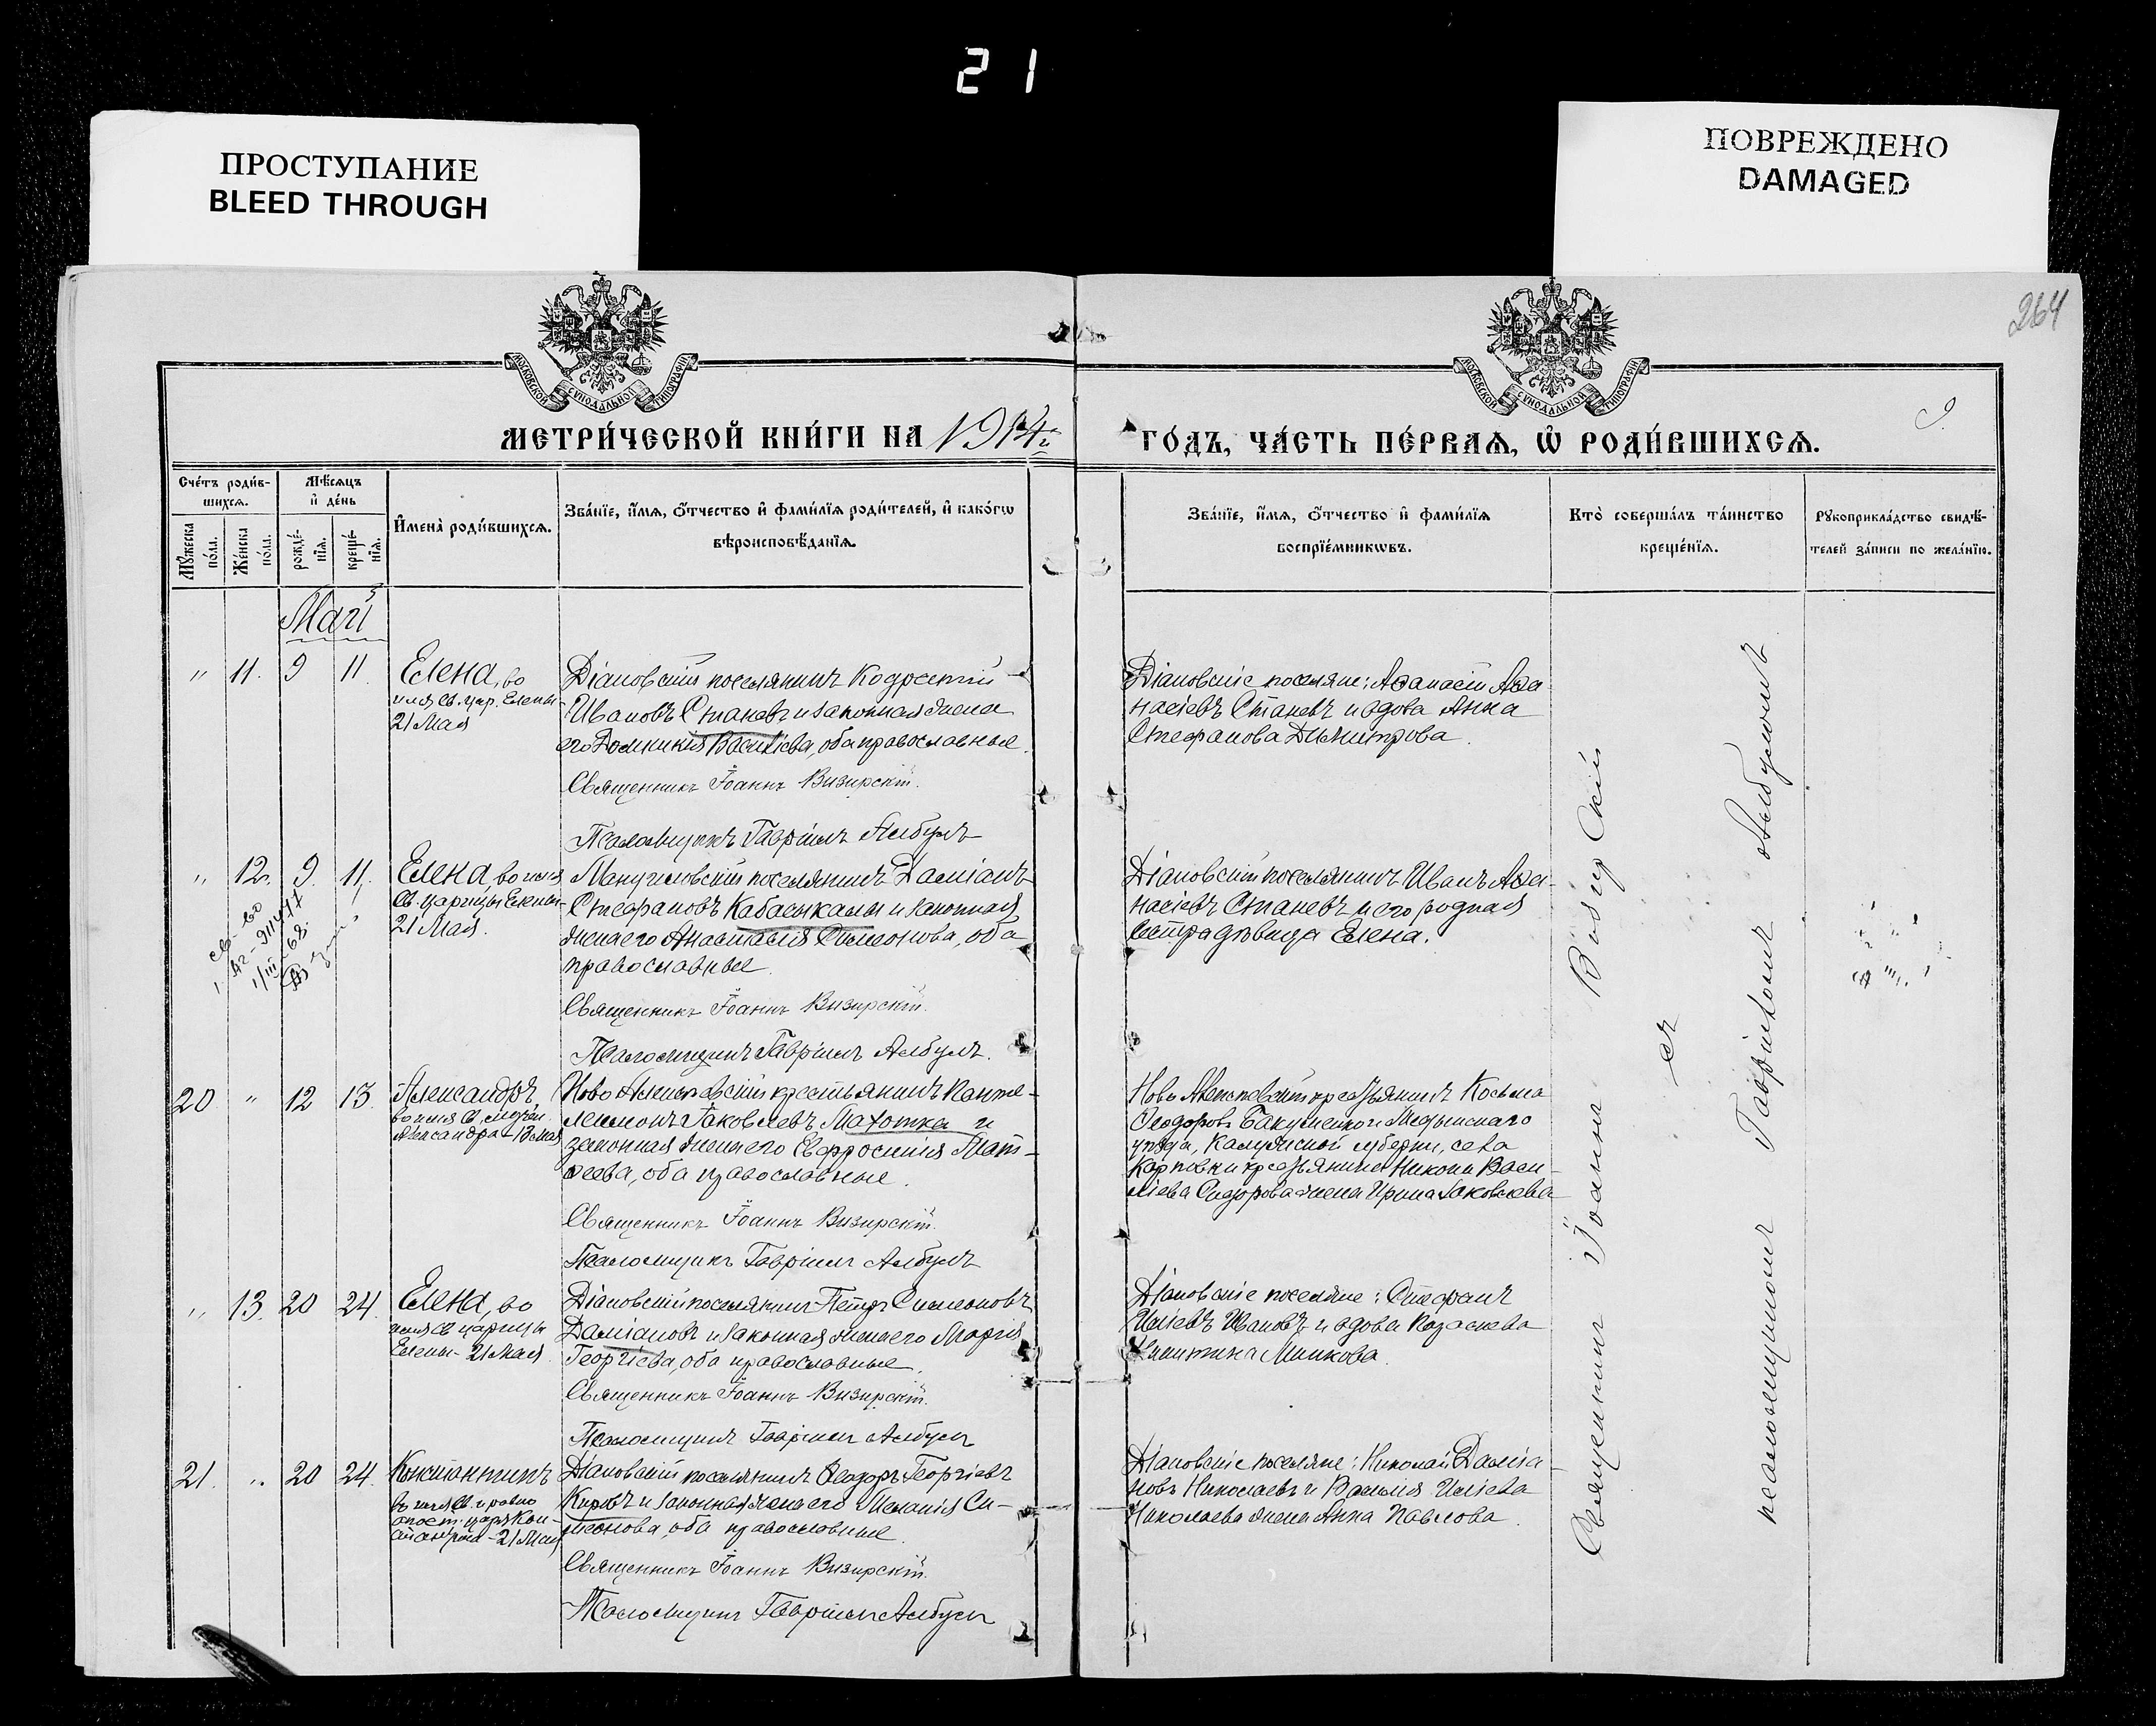 21
ПРОСТУПАНИЕ
BLEED THROUGH
ПОВРЕЖДЕНО
DAMAGED
264
МОСКОВСКОЙ СѴНОДАЛЬНОЙ ТИПОГРАФІИ
МОСКОВСКОЙ СѴНОДАЛЬНОЙ ТИПОГРАФІИ
МЕТРИ́ЧЕСКОЙ КНИ́ГИ НА 1914й
ГО́ДЪ, ЧА́СТЬ ПЕ́РВАѦ, Ѡ҆ РОДИ́ВШИХСѦ.
Сче́тъ роди́в-
шихсѧ.
Мѣ́сѧцъ
и҆ де́нь
Мꙋ́жеска
по́ла.
Же́нска
по́ла.
рожде́-
нїѧ.
креще́-
нїѧ.
И҆мена̀ роди́вшихсѧ.
Зва́нїе, и҆́мѧ, ѻ҆́тчество и҆ фами́лїѧ роди́телей, и҆ како́гѡ
вѣроисповѣ́данїѧ.
Зва́нїе, и҆́мѧ, ѻ҆́тчество и҆ фами́лїѧ
воспрїе́мникѡвъ.
Кто̀ соверша́лъ та́инство
креще́нїѧ.
Рꙋкоприкла́дство свидѣ́-
телей за́писи по жела́нїю.
Май
" 11. 9 11.
Елена, во
имя св. цар. Елены
21 Мая
Діановскій поселянинъ Кодратій
Ивановъ Станевъ и законная жена
его Домникія Василіева, оба православные.
Священникъ Іоаннъ Визирскій.
Псаломщикъ Гавріилъ Албулъ
Діановскіе поселяне: Аѳанасій Аѳа
насіевъ Станевъ и вдова Анна
Стефанова Димитрова.
" 12. 9. 11.
Елена, во имя
Св. царицы Елены
21 Мая.
Манукловскій поселянинъ Даміанъ
Стефановъ Кабасыкалы и законная
жена его Анастасія Симеонова, оба
православные.
Священникъ Іоаннъ Визирскій.
Псаломщикъ Гавріилъ Албулъ.
Діановскій поселянинъ Иванъ Аѳа-
насіевъ Станевъ и его родная
сестра дѣвица Елена.
20 " 12 13.
Александръ
во имя Св. мучен.
Александра - 13 мая
Ново Алексѣевскій крестьянинъ Панте-
леимонъ Іаковлевъ Махотка и
законная жена его Евфросинія Мат-
ѳеева, оба православные.
Священникъ Іоаннъ Визирскій.
Псаломщикъ Гавріилъ Албулъ
Ново Алексѣевскій крестьянинъ Косьма
Ѳеодоровъ Бакуменко и Медынскаго
уѣзда, Калужской губерніи, села
Карповки крестьянина Никона Васи-
ліева Сидорова жена Ирина Іаковлева
" 13. 20 24.
Елена, во
имя Св царицы
Елены - 21 Мая.
Діановскій поселянинъ Петръ Симеоновъ
Даміановъ и законная жена его Марія
Георгіева, оба православные.
Священникъ Іоаннъ Визирскій.
Псаломщикъ Гавріилъ Албулъ
Діановскіе поселяне: Стефанъ
Иліевъ Ивановъ и вдова Параскева
Никитина Минкова.
21. " 20 24.
Константинъ
въ имя Св. и равно
апост. царя Кон-
стантина - 21 Мая
Діановскій поселянинъ Ѳеодоръ Георгіевъ
Кировъ и законная жена его Меланія Си-
меонова оба православные.
Священникъ Іоаннъ Визирскій.
Псаломщикъ Гавріилъ Албулъ
Діановскіе поселяне: Николай Даміа-
новъ Николаевъ и Василія Иліева
Николаева жена Анна Павлова.
Священникъ Іоаннъ Визирскій
съ
псаломщикомъ Гавріиломъ Албуломъ